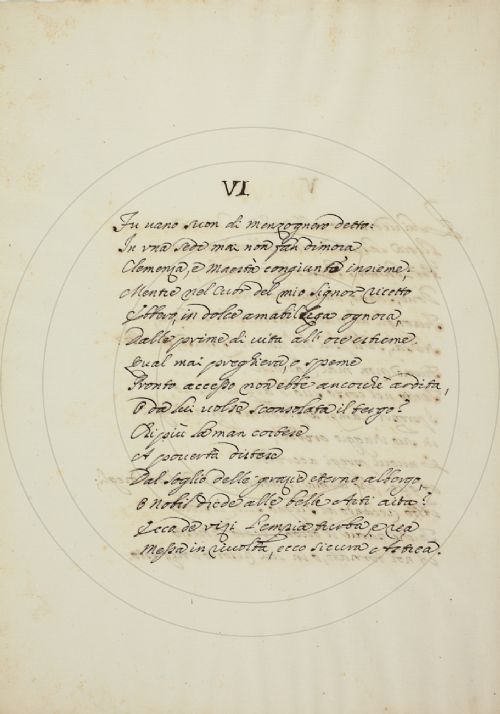 VI
Fu vano suon di menzognero detto:
In una sede mai non fan dimora
Clemenza, e Maestà congiunte insieme.
Mentre nel Cuor del mio Signor ricetto
Ebbero, in dolce amabil Lega ognora,
Dalle prime di vita all' ore estreme.
Qual mai preghiera, o speme
Pronto accesso non ebbe ancorchè ardita,
O da lui volse sconsolata il tergo?
Chi più la man cortese
A povertà distese
Dal soglio delle grazie eterno albergo,
E Nobil diede alle belle Arti aita?
Ecco de vizi l'empia turba, e rea
Messa in rivolta, ecco sicura Astrea.